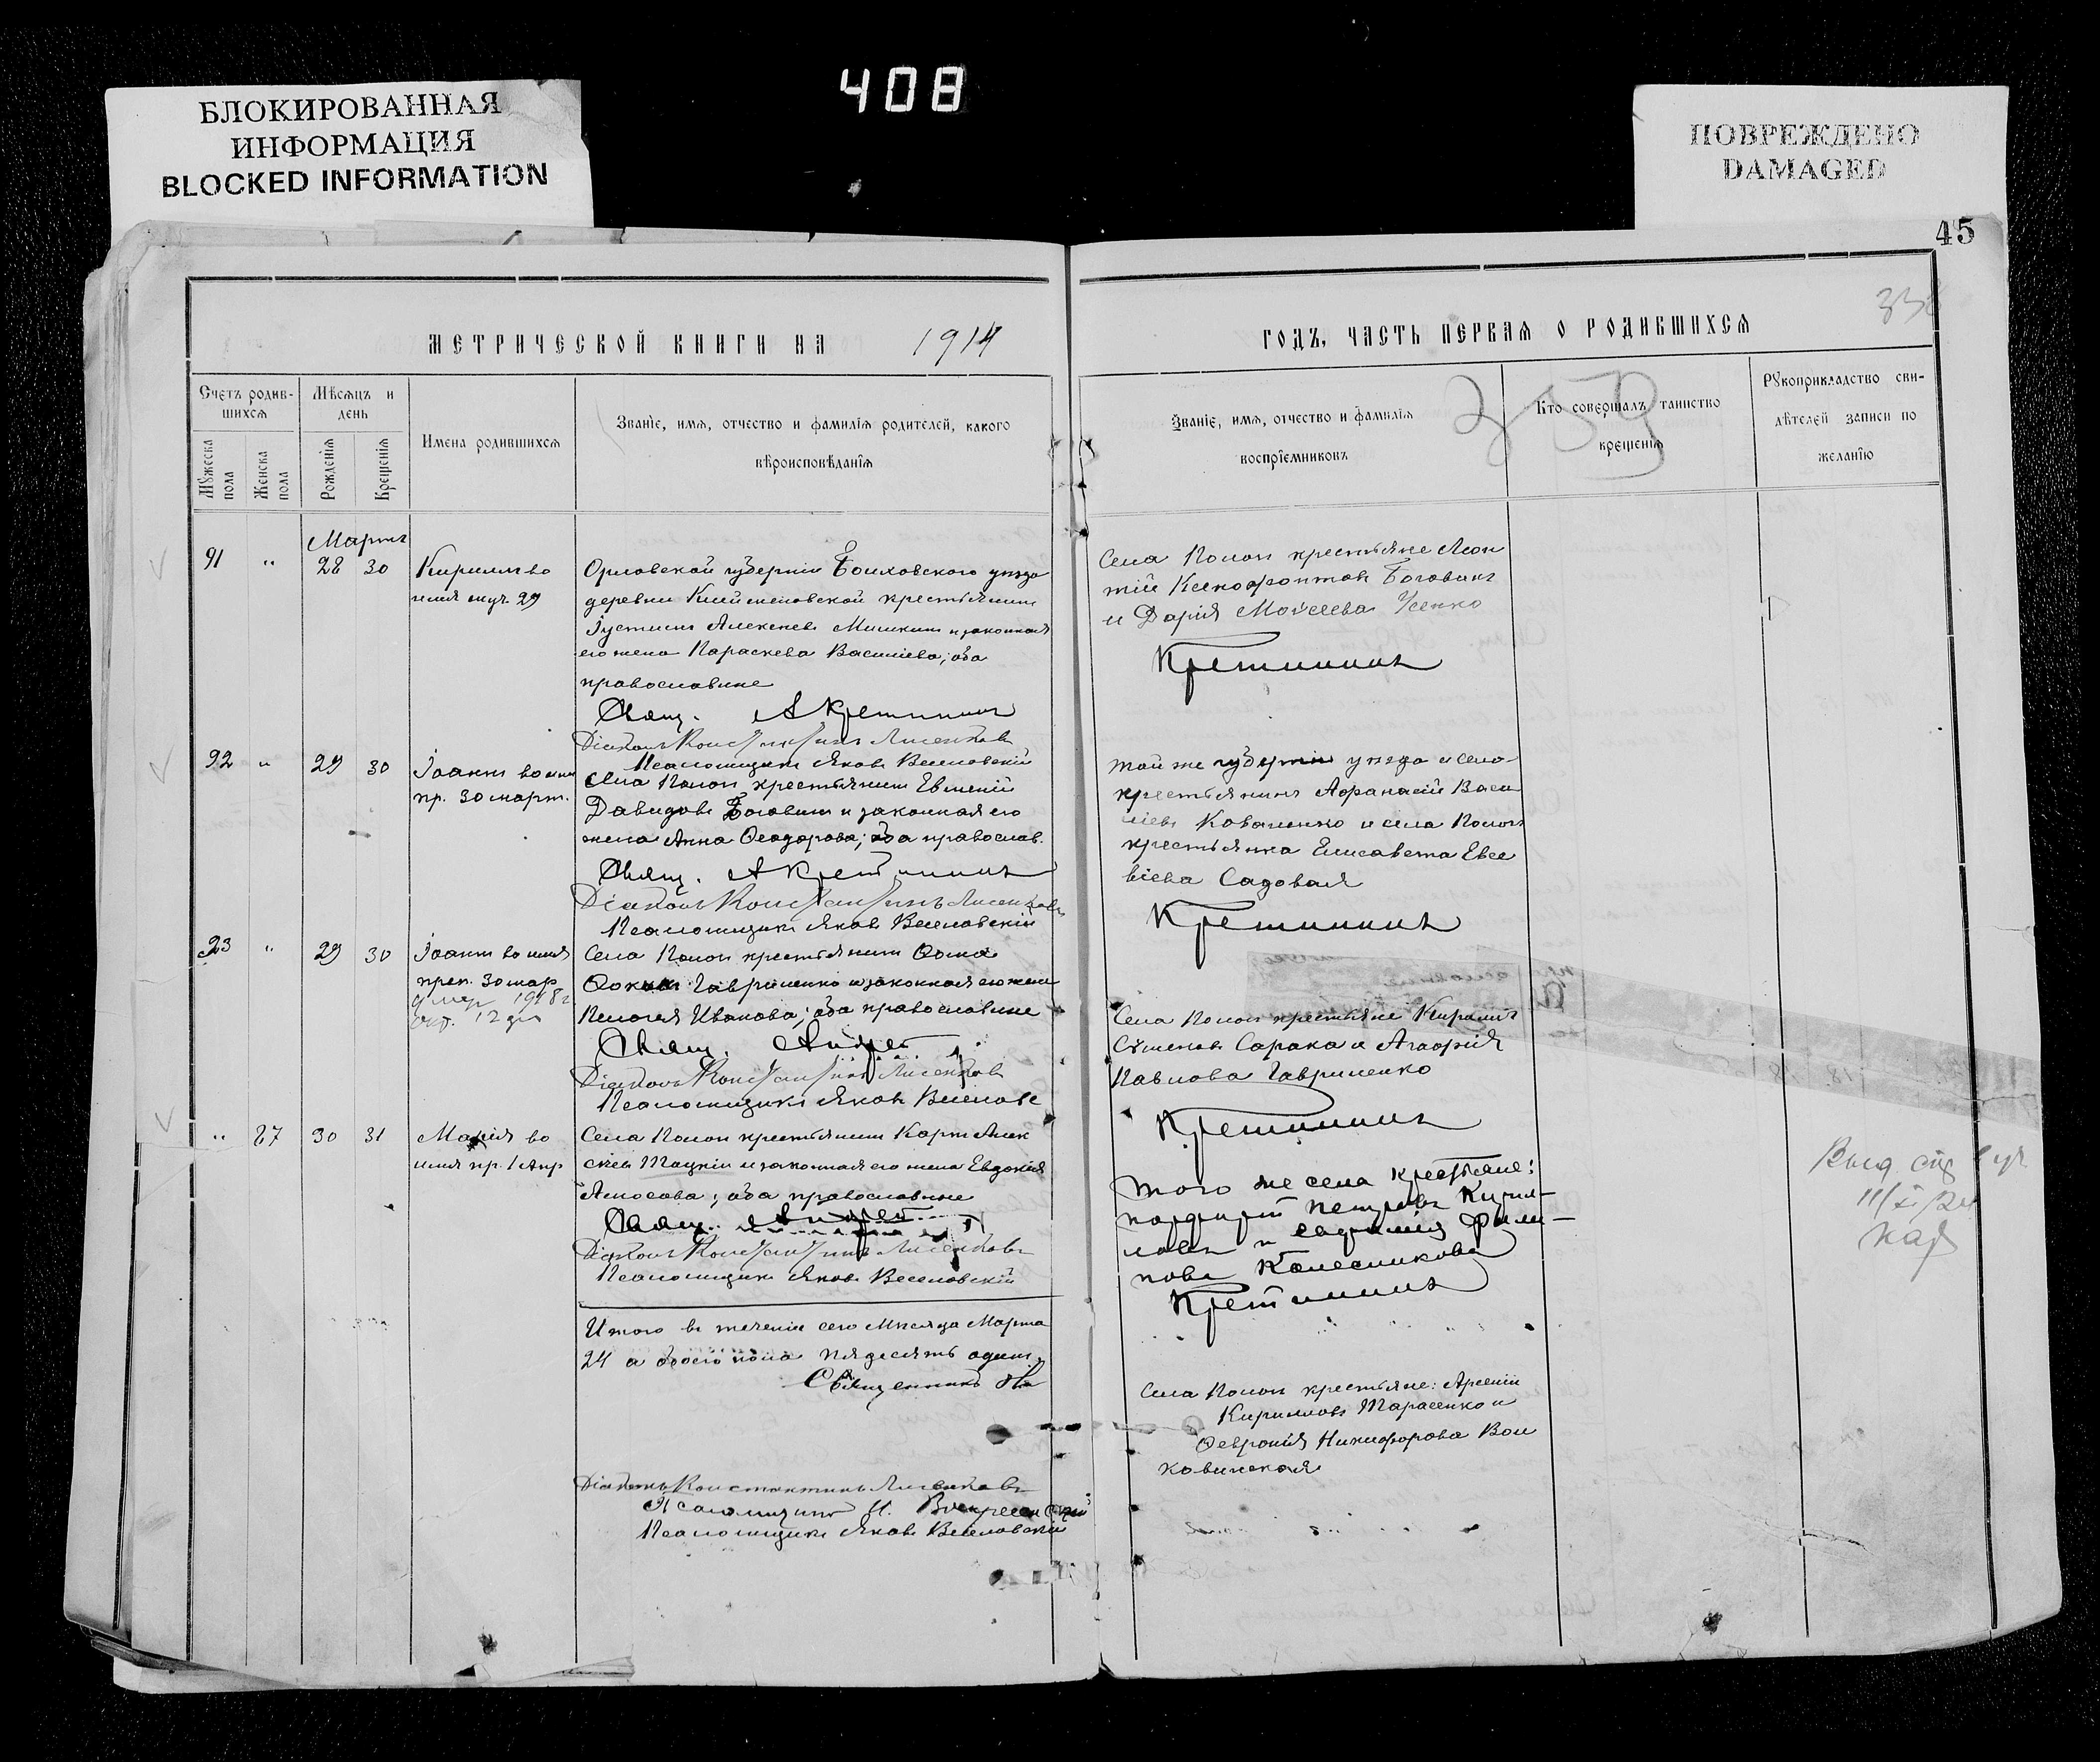 408
БЛОКИРОВАННАЯ
ИНФОРМАЦИЯ
BLOCKED INFORMATION
ПОВРЕЖДЕНО
DAMAGED
45
МЕТРИЧЕСКОЙ КНИГИ НА 1914
ГОДЪ, ЧАСТЬ ПЕРВАЯ О РОДИВШИХСЯ
Счетъ родив-
шихся
Мѣсяцъ и
день
Мужеска
пола
Женска
пола
Рожденія
Крещенія
Имена родившихся
Званіе, имя, отчество и фамилія родителей, какого
вѣроисповѣданія
Званіе, имя, отчество и фамилія
воспріемниковъ
Кто совершалъ таинство
крещенія
Рукоприкладство сви-
дѣтелей записи по
желанію
Мартъ
91 " 28 30 Кириллъ во
имя муч. 29
Орловской губерніи Болховского уѣзда
деревни крестьянинъ
Іустинъ Алексѣевъ Мишкин и законная
его жена Параскева Василіева; оба
православные
Свящ. А Кретининъ
Діаконъ Константинъ Лисенковъ
Псаломщикъ Яковъ Веселовскій
Села крестьяне Леон
тій Ксенофонтовъ Боговинъ
и Дарія Моѵсеева Усенко
Кретининъ
92 " 29 30 Іоаннъ во имя
пр. 30 март.
Села крестьянинъ Евгеній
Давидовъ Боговин и законная его
жена Анна Ѳеодорова; оба православ.
Свящ. А Кретининъ
Діаконъ Константинъ Лисенковъ
Псаломщикъ Яковъ Веселовскій
той же губерніи уѣзда и села
крестьянинъ Аѳанасій Васи
ліевъ Коваленко и села
крестьянка Елисавета Евсе
віева Садовая
Кретининъ
93 " 29 30 Іоаннъ во имя
преп. 30 мар
умер 1918 г
окт. 12 дня
Села крестьянинъ Ѳома
Ѳокинъ Гавриленко и законная его жена
Пелагея Иванова; оба православные
Свящ. Андрей
Діаконъ Константинъ Лисенковъ
Псаломщикъ Яковъ Веселовс
Села крестьяне Кириллъ
Сѵмеоновъ Сарана и Агаѳія
Павлова Гавриленко
Кретининъ
" 27 30 31 Марія во
имя пр. 1 Апр
Села крестьянинъ Карпъ Алек
сѣевъ и законная его жена Евдокія
Амосова; оба православные
Свящ. Андрей
Діаконъ Константинъ Лисенковъ
Псаломщикъ Яковъ Веселовскій
Того же села крестьяне:
Порфирій Петровъ Кирил-
ловъ и Евфимія Фили-
пова Колесникова
Кретининъ
Итого въ теченіи сего Мѣсяца Марта
24 а обоего пола пядесятъ одинъ
Священникъ
Діаконъ Константинъ Лисенковъ
Псаломщикъ И. Воскресенскій
Псаломщикъ Яковъ Веселовскій
Села крестьяне: Арсеній
Кирилловъ Тарасенко и
Ѳевронія Никифорова Вол
ковинская